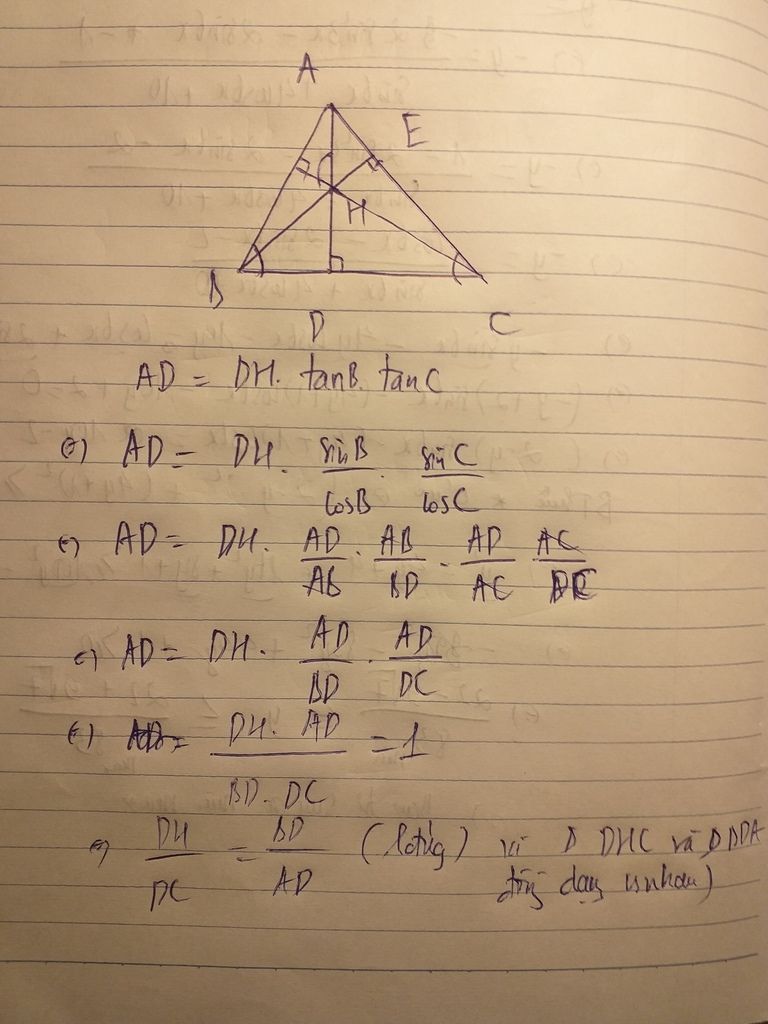 A
E
H
B
D
C
AD = DH. tanB. tanC
⇔) AD = DH. sinB/cosB . sinC/cosC
⇔) AD = DH. AD/AB . AB/BD . AD/AC . AC/DC
⇔) AD = DH. AD/BD . AD/DC
⇔) DH. AD / BD. DC = 1
⇔) DH/DC = BD/AD (luôn đúng) vì Δ DHC và Δ BDA
đồng dạng